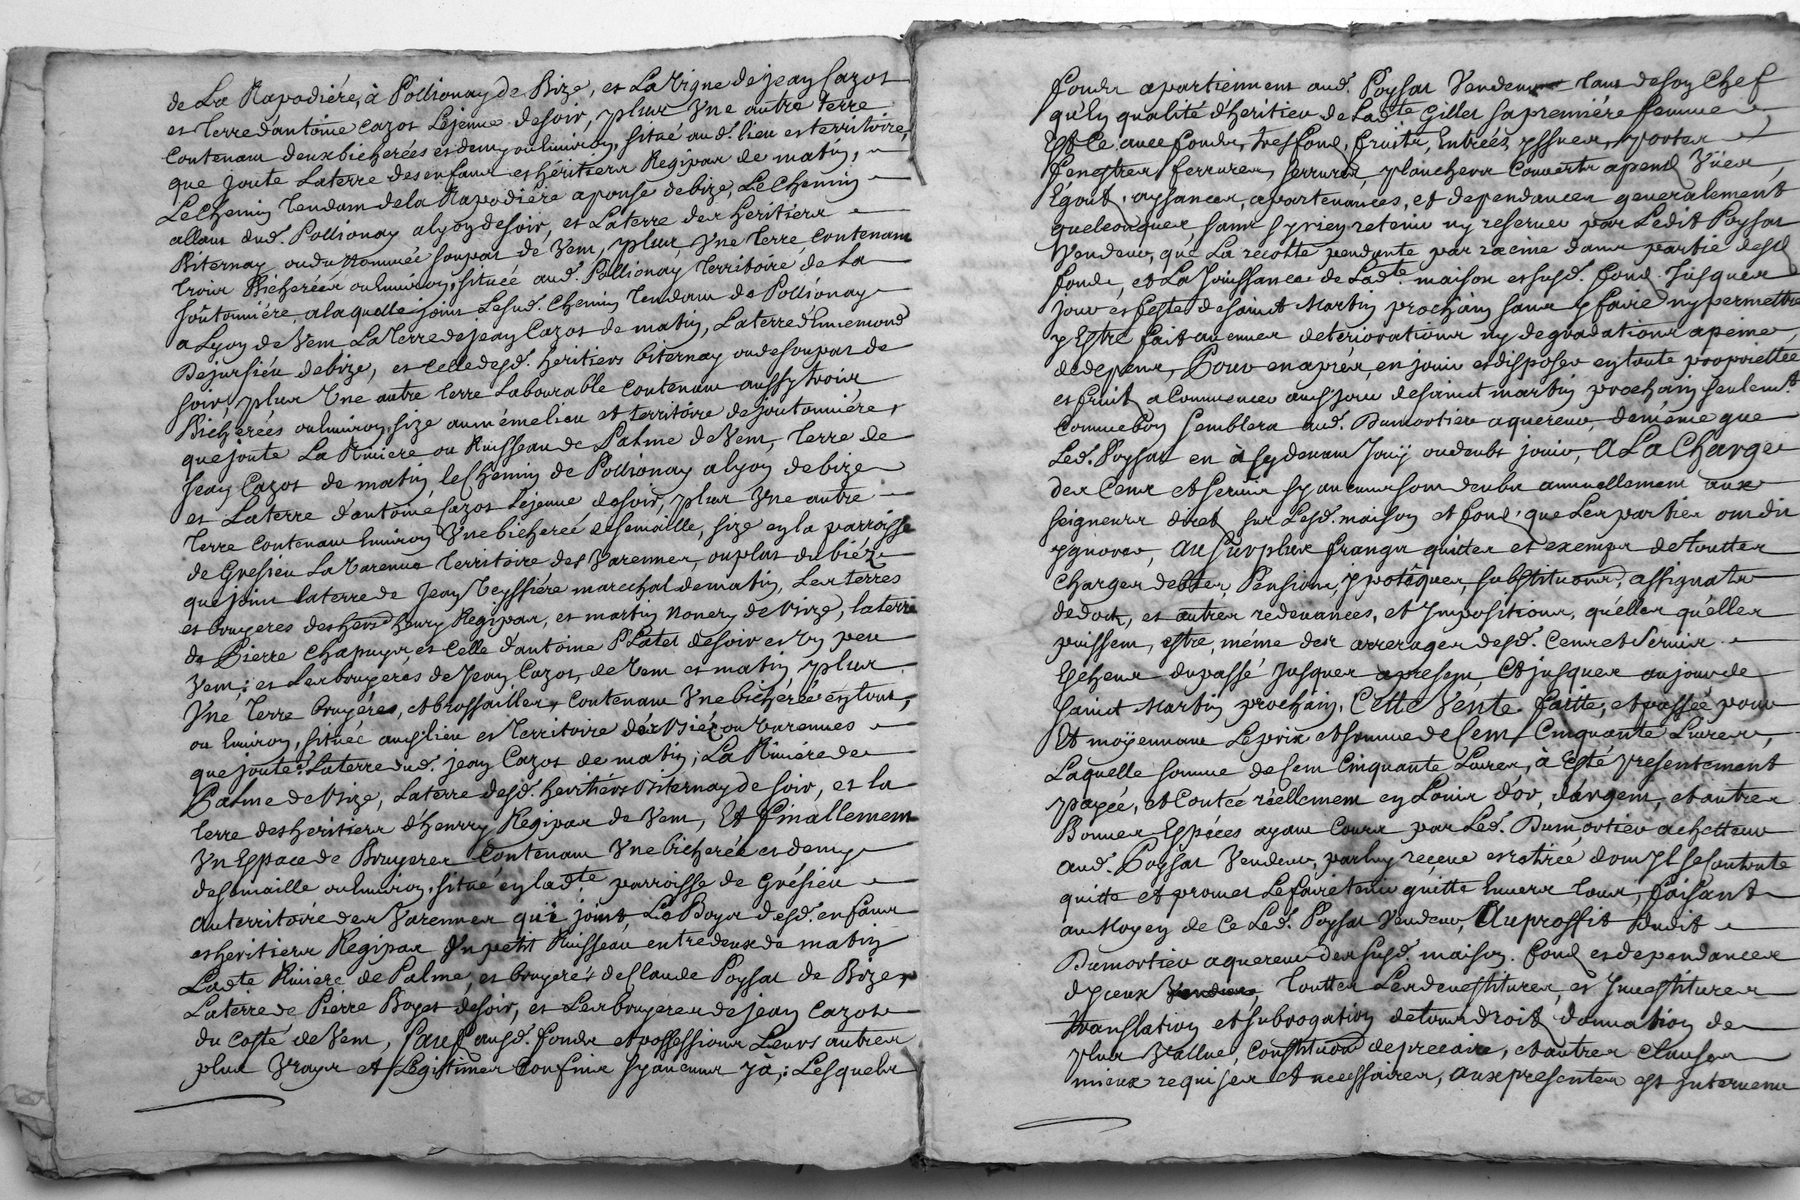 de La Rapodiére, à Pollionay de Bize, et La Vigne de jean Cazot
et terre d'antoine Cazot Lejeune de soir, plus Une autre terre
Contenant deux bicherées et demy ou Environ, situé aud. lieu et territoire,
que joint La terre des enfans et héritiers Regipas de matin,
Le Chemin tendant de la Rapodiére a ponse de bize, Le Chemin
allant dud. Pollionay a lyon de soir, et La terre des heritiers
Biternay ou du nommée soupat de Vent, plus Une terre contenant
trois Bicherées ou Environ, située aud. Pollionay Territoire de La
Joûtonniére, a laquelle joint Le susd. Chemin tendant de Pollionay
a Lyon de Vent La terre de jean Cazot de matin, La terre d'Ennemond
Dejussieu de bize, et celle desd. heritiers biternay ou de soupat de
soir, plus Une autre terre Labourable contenant aussy trois
Bicherées ou Environ, size au méme lieu et territoire de joutonniére,
que joute La Riviere ou Ruisseau de Palme de Vent, Terre de
Jean Cazot de matin le Chemin de Pollionay a lyon de bize
et La terre d'antoine Cazot Lejeune de soir, plus Une autre
Terre contenant Environ Une bicherée de semaille, size en la parroisse
de Gresieu La Varenne Territoire des Varennes, ou plat du biéz
que joint la terre de Jean Teyssiére marechal de matin, Les terres
et bruyeres des hers d'henry Regipas, et martin nonery de bize, la terre
de Pierre Chapuys, et Celle d'antoine Platet de soir et Un peu
Vent; et Les bruyéres de Jean Cazot, de Vent et matin, plus
Une Terre bruyéres, et brossailles, contenant Une bicherée en tout,
ou Environ, située aud. lieu et Territoire des Biéz ou Varennes
que joute: La terre dud. jean Cazot de matin; La Riviére de
Palme de bize, La terre desd. heritiers Biternay de soir, et la
terre des heritiers d'henrry Regipas de Vent, Et finallement
Un Espace de Bruyeres Contenant Une bicherée et demy
de semaille ou Environ, situé en lad.te parroisse de Grésieu
au territoire des Varennes qui joint Le Boyt desd. enfans
et heritiers Regipas Un petit Ruisseau entre deux de matin
Lad.te Riviere de Palme, et bruyeres de Claude Poysat de Bize,
La terre de Pierre Boyet de soir, et Les bruyeres de jean Cazot
du costé de Vent, sauf ausd. fonds et possessions Leurs autres
plus Vrays et Légitimes Confins sy aucuns y a; Lesquels
fonds apartiennent aud. Poysat Vendeur tant de son Chef
qu'en qualité d'héritier de Lad.te Gillet sa premiére femme
Est Ce avec fonds, tresfond, fruits, Entrées, yssues, portes
fenestres ferrures, serrures, planchers Couverts apend Viies,
Egout, aysances, apartenances, et dependances generalement
quelconques sans sy rien retenir ny reserver par Ledit Poysat
Vendeur, que La récolte pendante par racine dans partie desd.
fonds, et La Jouissance de Lad.te maison et susd. fond Jusques
jour et feste de saint Martin prochain sans y faire ny permettre
y Estre fait aucunes deteriorations ny degradations a peine
de depens, Pour en aprés, en jouir et disposer en toute propriettée
et fruit a Commencer aud. jour de saint martin prochain seulem.t
Comme bon semblera aud. Dumortier aquereur, de méme que
Led. Poysat en à cy devant Jouÿ ou deubt jouir, A La Charge
des Cens et Servis sy aucuns sont deubs annuellement aux
seigneurs direct sur Lesd. maison et fond, que Les parties ont dit
ygnorer, Au surplus frangs quittes et exempt de Touttes
Charges debtes, Pensions, ypotêques, substitutions, assignats
de dot, et autres redevances, et Impositions, qu'elles qu'elles
puissent, estre, méme des arrerages desd. Cens et Servis
Echeus du passé Jusques a present, et jusques au jour de
saint Martin prochain. Cette Vente faitte, et passée pour
Et moyennant Le prix et somme de Cent Cinquante Livres,
Laquelle somme de Cent Cinquante Livres, à Esté presentement
payée, et Contée réellement en Louis d'or, d'argent, et autres
Bonnes Espéces ayant Cours par Led. Dumortier achetteur
aud. Poysat Vendeur, par luy reçeue et retirée dont Il se Contente
quitte et promet Le faire tenir quitte Envers tous, faisant
au Moyen de Ce Led. Poysat Vendeur, Au proffit dudit
Dumortier aquereur des susd. maison. fond et dependances
d'yceux Touttes Les devestitures, et Investitures
translation et subrogation de tous droits donnation de
plus Vallue, Constitution de precaire, et autres Clauses
mieux requises et necessaires, aux presentes est intervenu